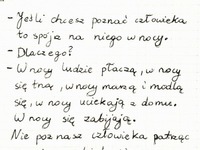 - Jeśli chcesz poznać człowieka
to spójż na niego w nocy.
- Dlaczego?
- W nocy ludzie płaczą, w nocy
się tną, w nocy marzą i modlą
się, w nocy uciekają z domu.
W nocy się zabijają.
Nie poznasz człowieka patrząc